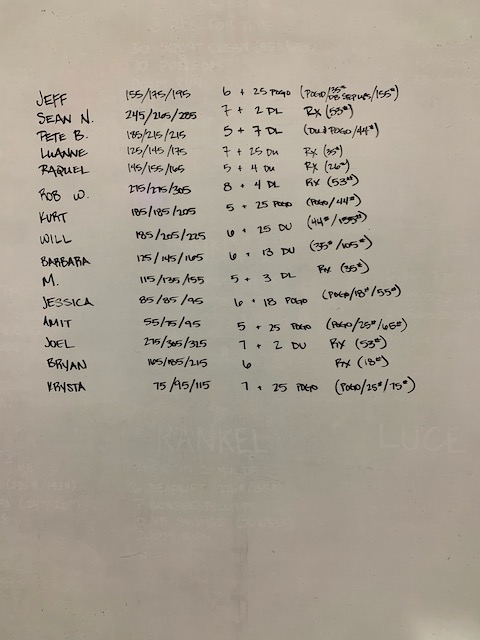 JEFF 155/175/195 6 + 25 POGO (POGO/35# DB STEP UPS/155#)
SEAN N. 245/265/285 7 + 2 DL RX (53#)
PETE B. 185/215/215 5 + 7 DL (DU & POGO/44#)
LUANNE 125/145/175 7 + 25 DU RX (35#)
RAQUEL 145/155/165 5 + 4 DU RX (26#)
ROB W. 275/275/305 8 + 4 DL RX (53#)
KURT 185/185/205 5 + 25 POGO (POGO/44#)
WILL 185/205/225 6 + 25 DU (44#/155#)
BARBARA 125/145/165 6 + 13 DU (35#/105#)
M. 115/135/155 5 + 3 DL RX (35#)
JESSICA 85/85/95 6 + 18 POGO (POGO/18#/55#)
AMIT 55/75/95 5 + 25 POGO (POGO/25#/65#)
JOEL 275/305/325 7 + 2 DU RX (53#)
BRYAN 165/185/215 6 RX (18#)
KRYSTA 75/95/115 7 + 25 POGO (POGO/25#/75#)
RANKEL LUCE